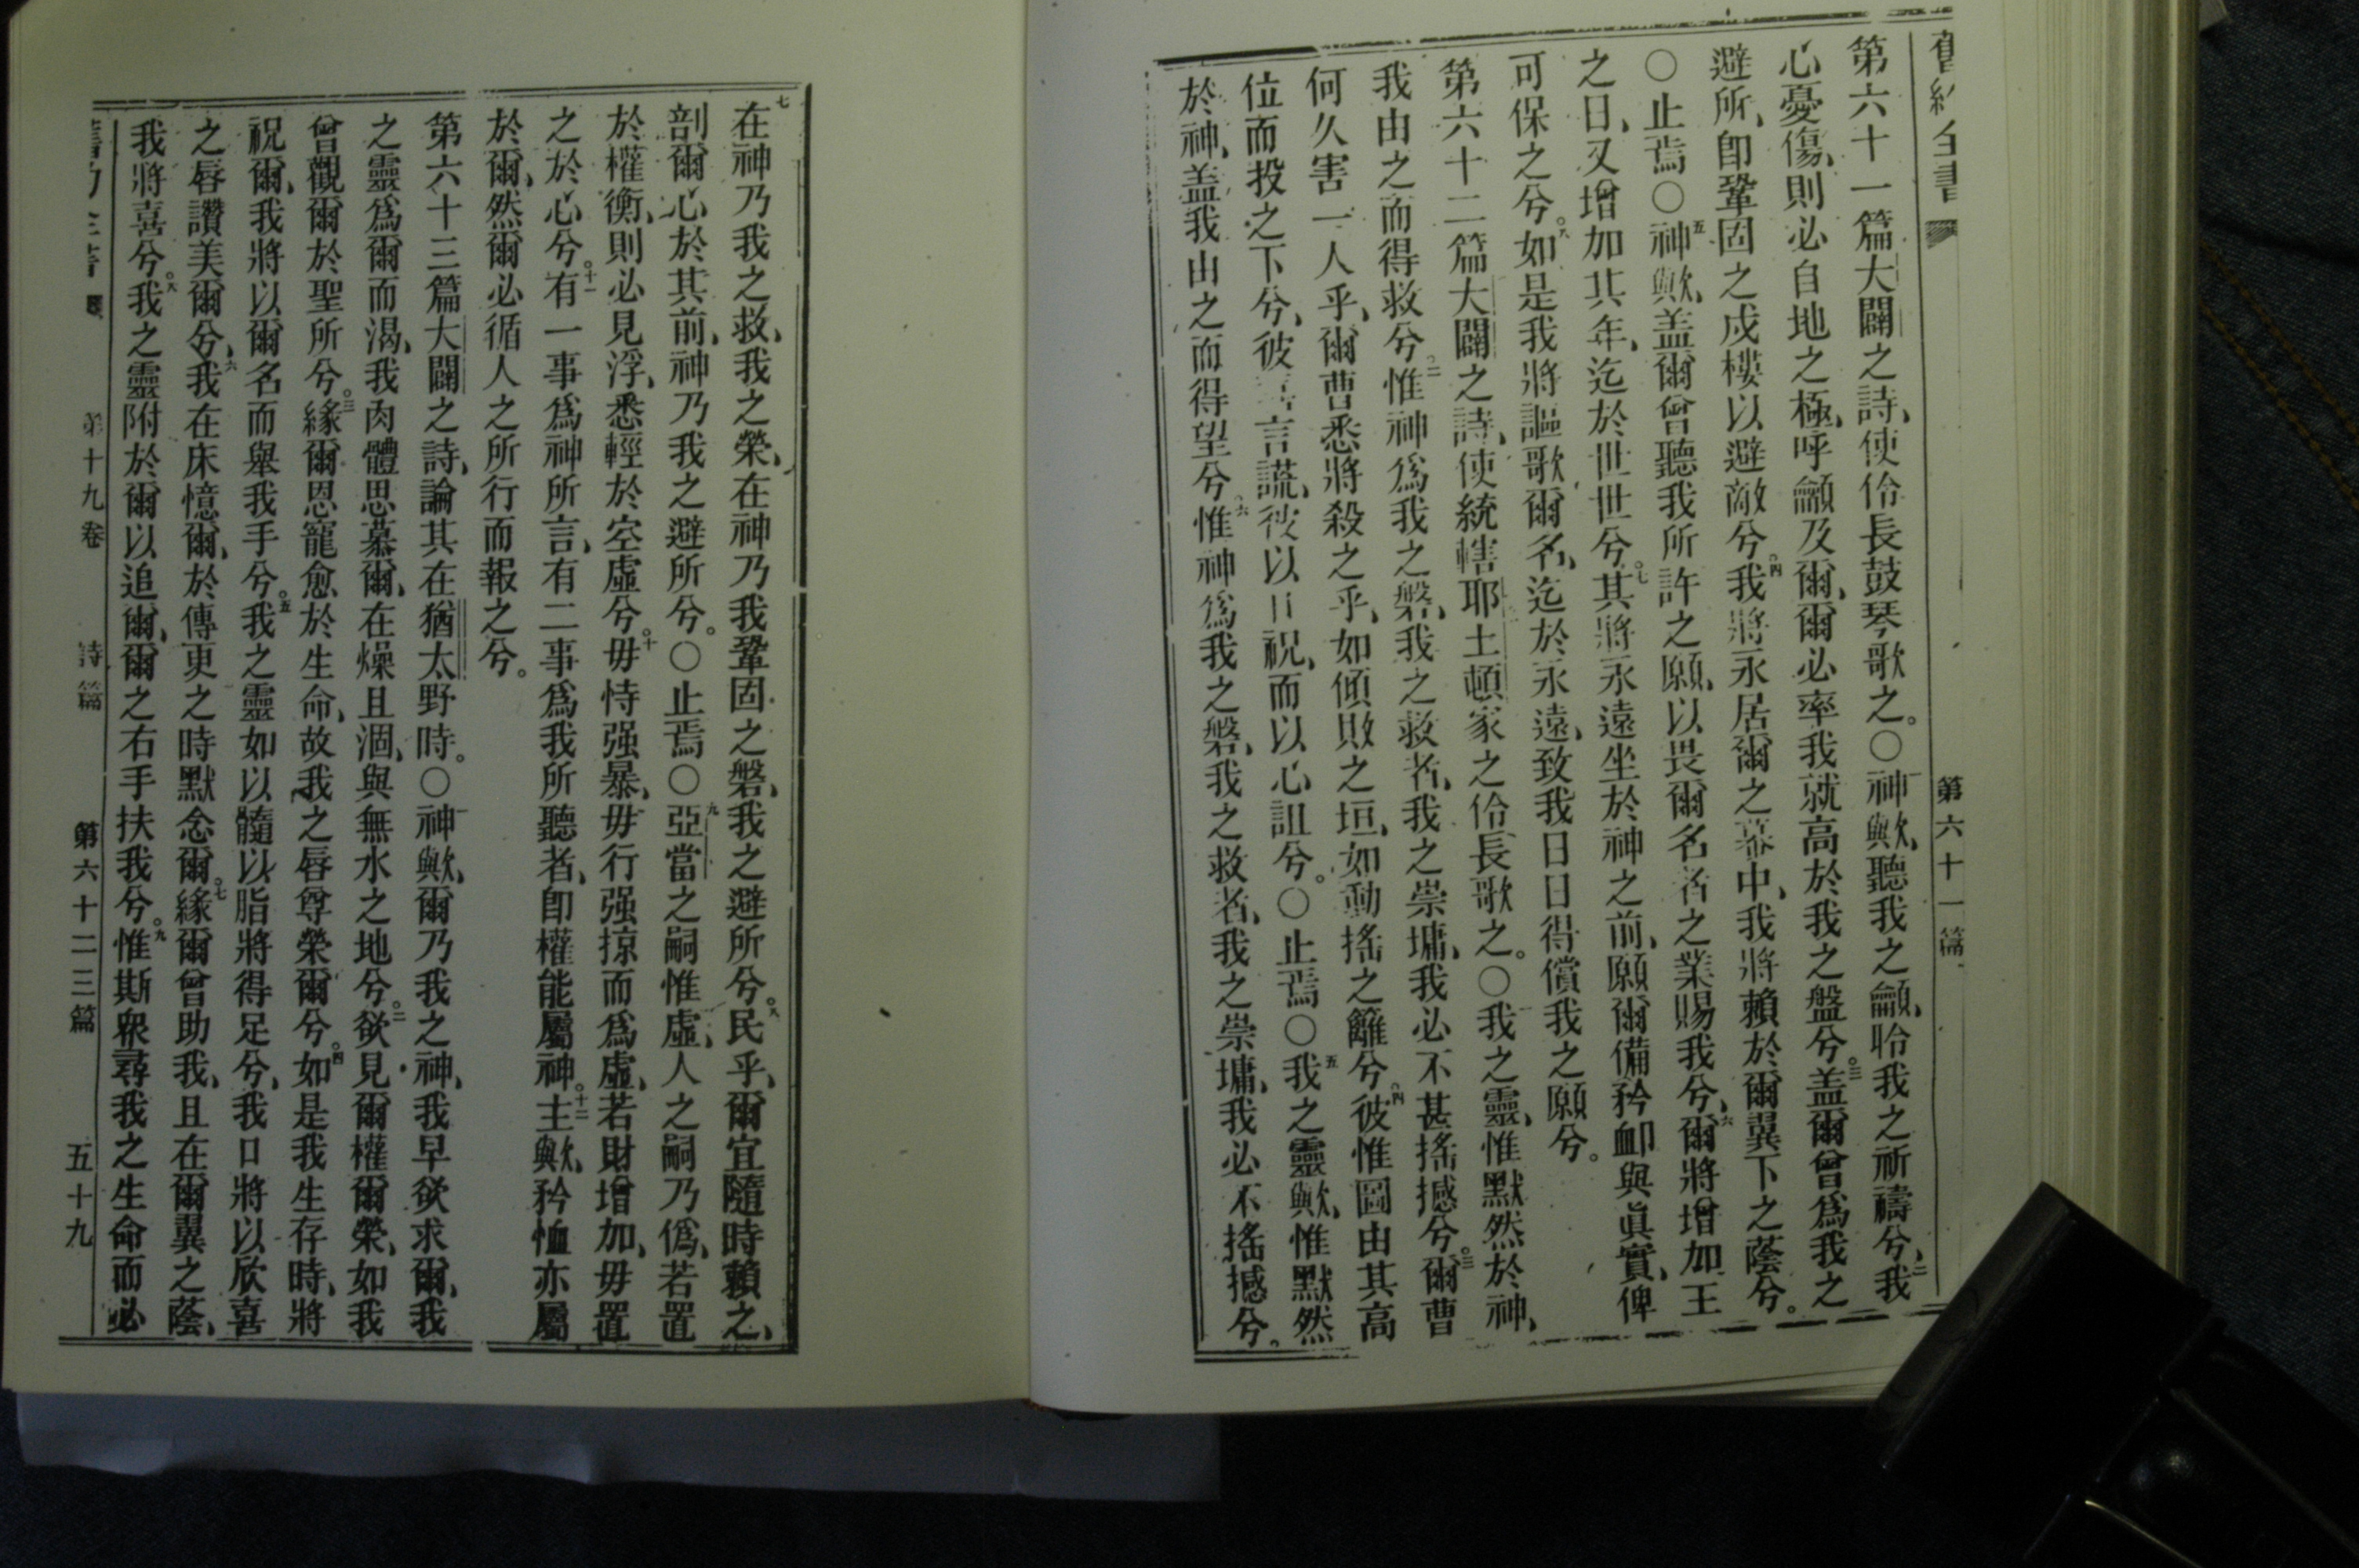 舊約全書 第六十一篇
第六十一篇大闢之詩、使伶長鼓琴歌之。○一神歟、聽我之籲、聆我之祈禱兮、二我
心憂傷、則必自地之極、呼籲及爾、爾必率我就高於我之盤兮。三盖爾曾爲我之
避所、即鞏固之戍樓以避敵兮。四我將永居爾之幕中、我將賴於爾翼下之蔭兮。
○止焉○五神歟、盖爾曾聽我所許之願、以畏爾名者之業賜我兮、六爾將增加王
之日、又增加其年、迄於世世兮。七其將永遠坐於神之前、願爾備矜衈與眞實、俾
可保之兮。八如是我將謳歌爾名、迄於永遠、致我日日得償我之願兮。
第六十二篇大闢之詩、使統轄耶土頓家之伶長歌之。○一我之靈、惟默然於神、
我由之而得救兮。二惟神爲我之磐、我之救者、我之崇墉、我必不甚搖撼兮。三爾曹
何久害一人乎、爾曹悉將殺之乎、如傾敗之垣、如動搖之籬兮。四彼惟圖由其高
位而投之下兮、彼喜言謊、彼以口祝、而以心詛兮。○止焉○五我之靈歟、惟默然
於神、盖我由之而得望兮。六惟神爲我之磐、我之救者、我之崇墉、我必不搖撼兮。
七在神乃我之救、我之榮、在神乃我鞏固之磐、我之避所兮。八民乎、爾宜隨時賴之、
剖爾心於其前、神乃我之避所兮。○止焉○九亞當之嗣惟虛、人之嗣乃僞、若置
於權衡、則必見浮、悉輕於空虛兮。十毋恃强暴、毋行强掠而爲虛、若財增加、毋置
之於心兮。十一有一事爲神所言、有二事爲我所聽者、即權能屬神。十二主歟、矜恤亦屬
於爾、然爾必循人之所行而報之兮。
第六十三篇大闢之詩、論其在猶太野時。○一神歟、爾乃我之神、我早欲求爾、我
之靈爲爾而渴、我肉體思慕爾、在燥且涸、與無水之地兮。二欲見爾權爾榮、如我
曾觀爾於聖所兮。三緣爾恩寵愈於生命、故我之唇尊榮爾兮。四如是我生存時、將
祝爾、我將以爾名而舉我手兮。五我之靈如以髓以脂將得足兮、我口將以欣喜
之唇讚美爾兮、六我在床憶爾、於傳更之時默念爾。七緣爾曾助我、且在爾翼之蔭、
我將喜兮。八我之靈附於爾以追爾、爾之右手扶我兮。九惟斯衆尋我之生命而必
第十九卷 詩篇 第六十二三篇 五十九